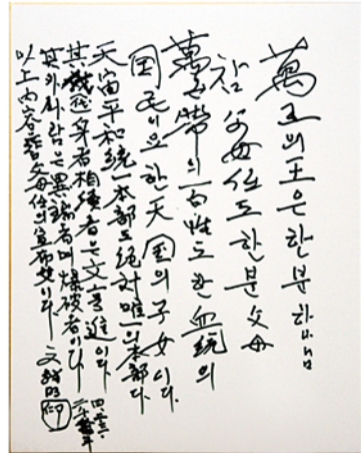 萬王의 王은 한분 하나님
참 父母任도 한분 父母
萬世帶의 百性도 한 血統의
国民이요 한 天国의 子女이다.
天宙平和統一本部도 絶対唯一의 本部다.
其 代身者 相續者는 文亨進이다.
其外사람은 異端者며 爆破者이다.
以上内容은 참父母任의 宣布文이다. 文鮮明 印